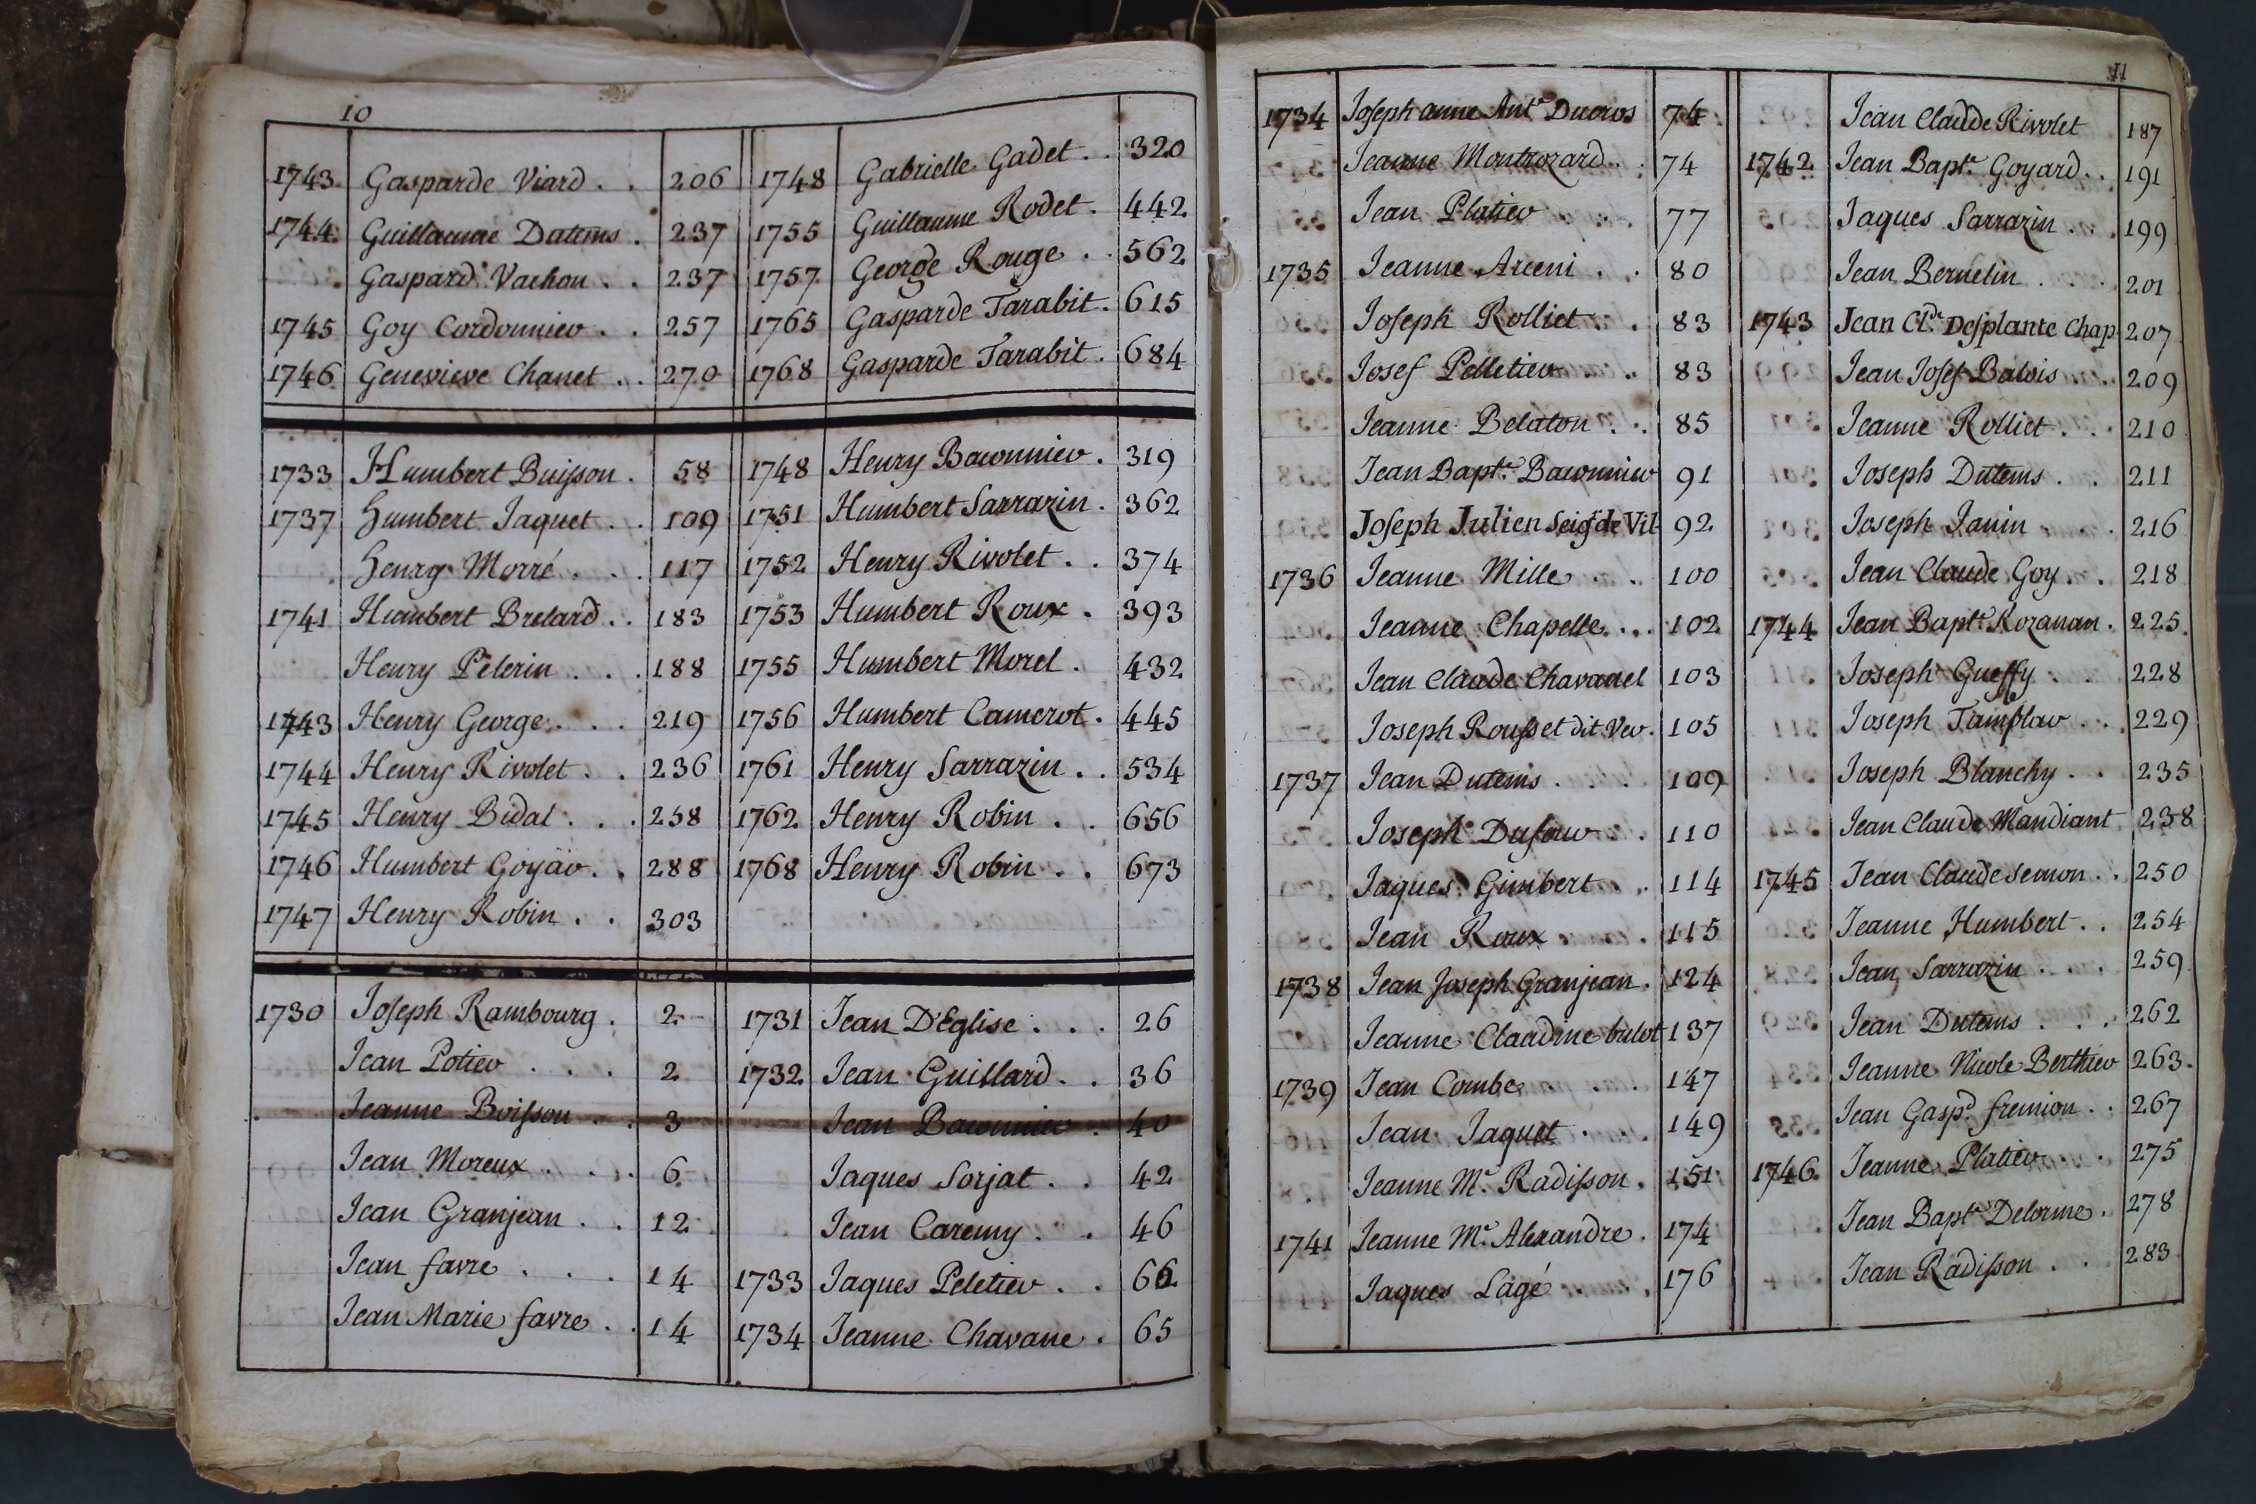 10
1743 Gasparde Viard . . 206
1744 Guillaume Dutems . 237
Gaspard Vachon . . 237
1745 Goy Cordonniev . . 257
1746 Genevieve Chanet . . 270
1748 Gabrielle Gadet . . 320
1755 Guillaume Rodet . 442
1757 George Rouge . . 562
1765 Gasparde Tarabit . 615
1768 Gasparde Tarabit . 684
1733 Humbert Buisson . 58
1737 Humbert Jaquet . . 109
Henry Morré . . . 117
1741 Humbert Brelard . . 183
Henry Pelerin . . . 188
1743 Henry George . . . 219
1744 Henry Rivolet . . 236
1745 Henry Bidal . . . 258
1746 Humbert Goyav . . 288
1747 Henry Robin . . 303
1748 Henry Baconniev . 319
1751 Humbert Sarrazin . 362
1752 Henry Rivolet . . 374
1753 Humbert Roux . 393
1755 Humbert Morel . 432
1756 Humbert Camerot . 445
1761 Henry Sarrazin . . 534
1762 Henry Robin . . 656
1768 Henry Robin . . 673
1730 Joseph Rambourg . 2
Jean Potiev . . . 2
Jeanne Boisson . . 3
Jean Moreux . . . 6
Jean Granjean . . 12
Jean favre . . . 14
Jean Marie favre . . 14
1731 Jean D'Eglise . . . 26
1732 Jean Guillard . . 36
Jean Baconniev . 40
Jaques Sorjat . . 42
Jean Caremy . . 46
1733 Jaques Peletiev . . 62
1734 Jeanne Chavane . 65
11
1734 Joseph anne Ant.e Ducros 74
Jeanne Montrozard . . 74
Jean Platiev . . . 77
1735 Jeanne Arceni . . 80
Joseph Rolliet . . 83
Josef Pelletiev . . 83
Jeanne Belaton . . 85
Jean Bapt.e Baconniev 91
Joseph Julien Seig.r de Vil 92
1736 Jeanne Mille . . 100
Jeanne Chapelle . . . 102
Jean Claude Chavanel 103
Joseph Rousset dit Vev . 105
1737 Jean Dutems . . . 109
Joseph Dufouv . 110
Jaques Gimbert . . 114
Jean Roux . . . 115
1738 Jean Joseph Granjean . 124
Jeanne Claudine bulot 137
1739 Jean Combe . . . 147
Jean Jaquet . . 149
Jeanne M.e Radisson . 151
1741 Jeanne M.e Alexandre . 174
Jaques Lagé . 176
Jean Claude Rivolet 187
1742 Jean Bapt.e Goyard . . 191
Jaques Sarrazin . . . 199
Jean Bernelin . . . 201
1743 Jean Cl.de Desplante Chap 207
Jean Josef Balois . . . 209
Jeanne Rolliet . . . 210
Joseph Dutems . . 211
Joseph Janin . . 216
Jean Claude Goy . . 218
1744 Jean Bapt.e Rozanan . 225
Joseph Gueffy . . 228
Joseph . . 229
Joseph Blanchy . . 235
Jean Claude Mandiant 238
1745 Jean Claude Semon . . 250
Jeanne Humbert . . 254
Jean Sarrazin . . . 259
Jean Dutems . . . 262
Jeanne Nicole Berthiev 263
Jean Gasp.d fremion . . 267
1746 Jeanne Platiev . . . 275
Jean Bapt.e Delorme . 278
Jean Radisson . . 283